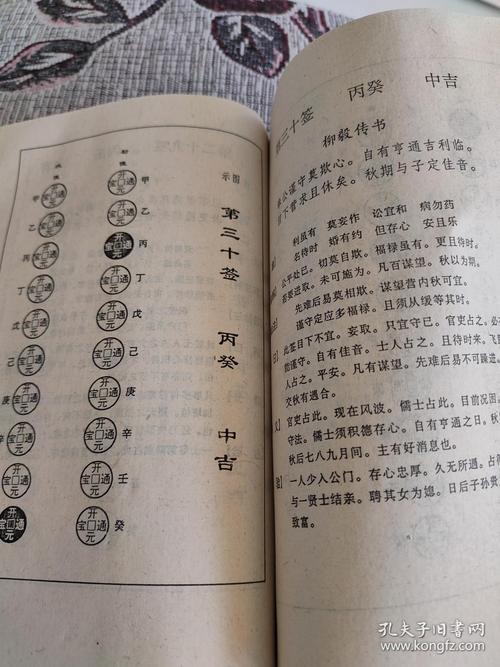 图示
第三十签 丙癸 中吉
初值
甲
乙
丙
丁
戊
己
庚
辛
壬
癸
甲
乙
丙
丁
戊
己
庚
辛
开元通宝
第三十签 丙癸 中吉
柳毅传书
公谨守莫欺心。自有亨通吉利临。
下营求且休矣。秋期与子定佳音。
利虽有 莫妄作 讼宜和 病勿药
名待时 婚有约 但存心 安且乐
公平处已。切莫自欺。福禄虽有。更且待时。
若要进取。未可施为。凡百谋望。秋以为期。
先难后易莫相欺。谋望营内秋可宜。
谨守定应多福禄。且须从缓等其时。
此签目下不宜。妄取。只宜守已。官吏占之。
勉谨守。自有佳音。士人占之。且待时来。飞
人占之。平安。凡有谋望。先难后易
交秋有遇合。
官贵占此。现在风波。儒士占此。目前况困。
守法。儒士须积德存心。自有亨通之日。秋
秋后七八九月间。主有好消息也。
一人少入公门。存心忠厚。久无所遇。占
与一贤士结亲。聘其女为媳。日后子孙贵
致富。
孔夫子旧书网
www.kongfz.com